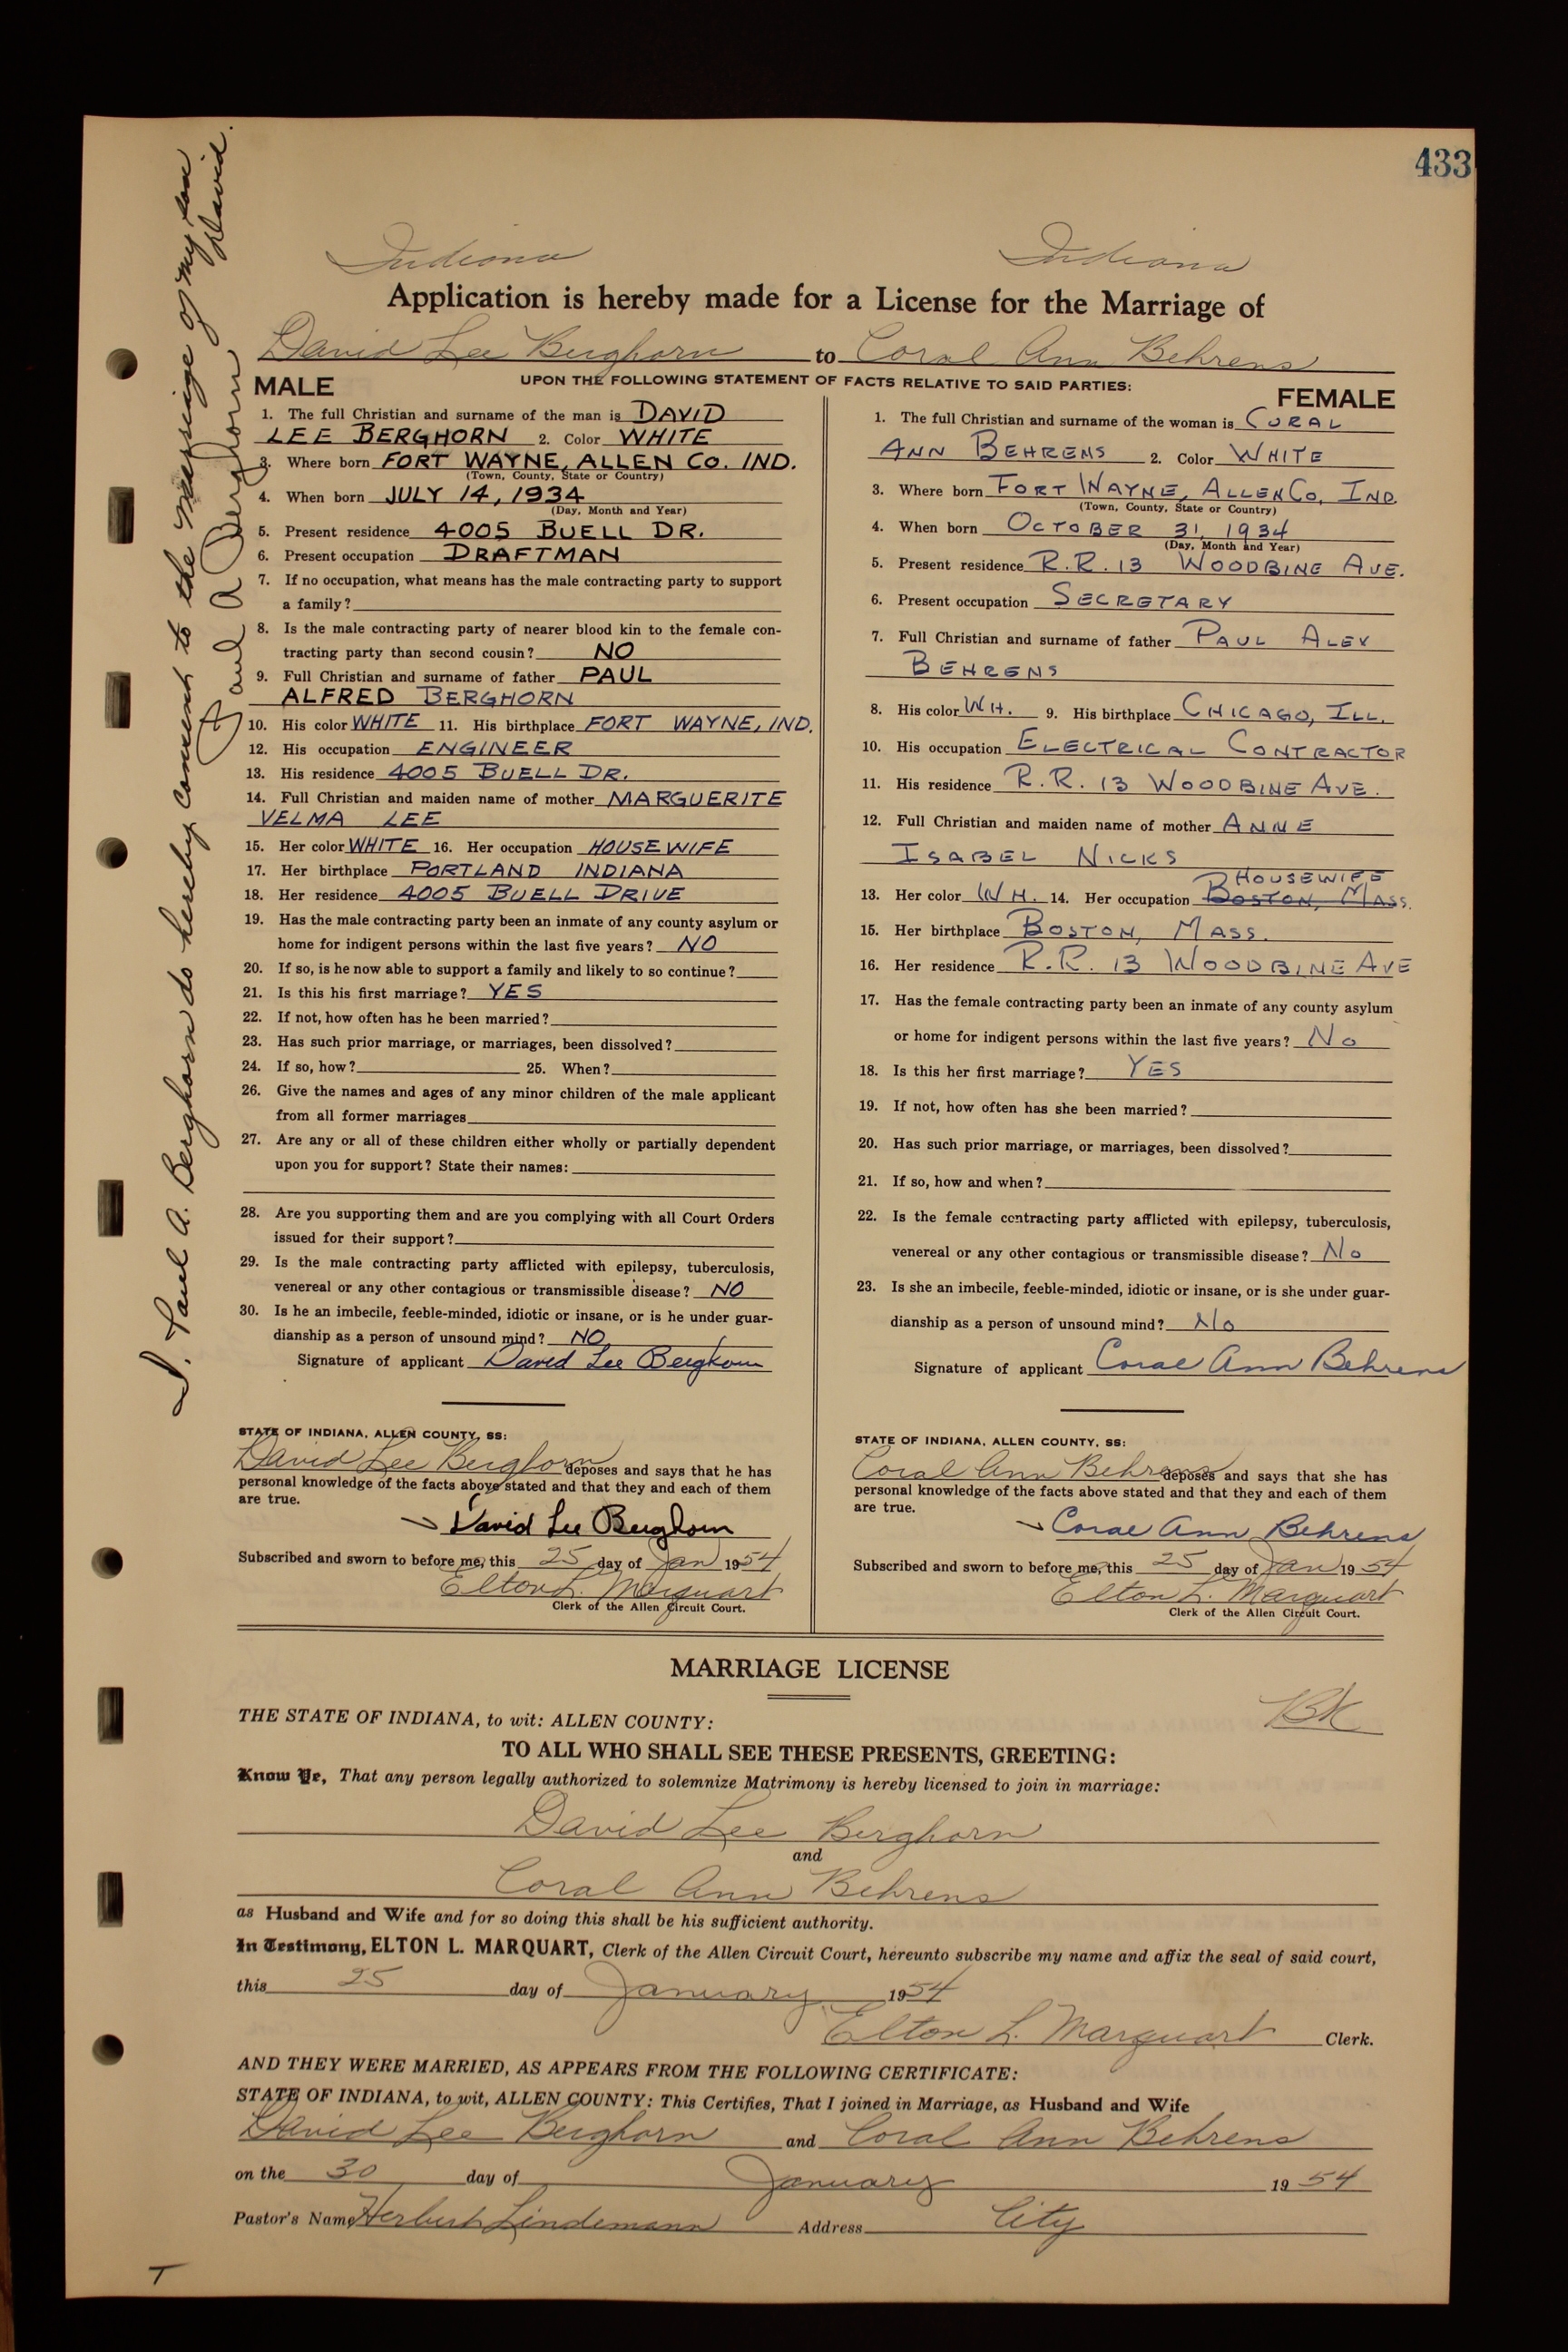 433
Indiana Indiana
Application is hereby made for a License for the Marriage of
David Lee Berghorn to Coral Ann Behrens
UPON THE FOLLOWING STATEMENT OF FACTS RELATIVE TO SAID PARTIES:
MALE
1. The full Christian and surname of the man is DAVID
LEE BERGHORN 2. Color WHITE
3. Where born FORT WAYNE, ALLEN CO. IND.
(Town, County, State or Country)
4. When born JULY 14, 1934
(Day, Month and Year)
5. Present residence 4005 BUELL DR.
6. Present occupation DRAFTMAN
7. If no occupation, what means has the male contracting party to support
a family?
8. Is the male contracting party of nearer blood kin to the female con-
tracting party than second cousin? NO
9. Full Christian and surname of father PAUL
ALFRED BERGHORN
10. His color WHITE 11. His birthplace FORT WAYNE, IND.
12. His occupation ENGINEER
13. His residence 4005 BUELL DR.
14. Full Christian and maiden name of mother MARGUERITE
VELMA LEE
15. Her color WHITE 16. Her occupation HOUSEWIFE
17. Her birthplace PORTLAND INDIANA
18. Her residence 4005 BUELL DRIVE
19. Has the male contracting party been an inmate of any county asylum or
home for indigent persons within the last five years? NO
20. If so, is he now able to support a family and likely to so continue?
21. Is this his first marriage? YES
22. If not, how often has he been married?
23. Has such prior marriage, or marriages, been dissolved?
24. If so, how? 25. When?
26. Give the names and ages of any minor children of the male applicant
from all former marriages
27. Are any or all of these children either wholly or partially dependent
upon you for support? State their names:
28. Are you supporting them and are you complying with all Court Orders
issued for their support?
29. Is the male contracting party afflicted with epilepsy, tuberculosis,
venereal or any other contagious or transmissible disease? NO
30. Is he an imbecile, feeble-minded, idiotic or insane, or is he under guar-
dianship as a person of unsound mind? NO
Signature of applicant David Lee Berghorn
STATE OF INDIANA, ALLEN COUNTY, SS:
David Lee Berghorn deposes and says that he has
personal knowledge of the facts above stated and that they and each of them
are true.
David Lee Berghorn
Subscribed and sworn to before me, this 25 day of Jan 1954
Elton L. Marquart
Clerk of the Allen Circuit Court.
FEMALE
1. The full Christian and surname of the woman is CORAL
ANN BEHRENS 2. Color WHITE
3. Where born FORT WAYNE, ALLEN CO, IND.
(Town, County, State or Country)
4. When born OCTOBER 31, 1934
(Day, Month and Year)
5. Present residence R.R. 13 WOODBINE AVE.
6. Present occupation SECRETARY
7. Full Christian and surname of father PAUL ALEX
BEHRENS
8. His color WH. 9. His birthplace CHICAGO, ILL.
10. His occupation ELECTRICAL CONTRACTOR
11. His residence R.R. 13 WOODBINE AVE.
12. Full Christian and maiden name of mother ANNE
ISABEL NICKS
HOUSEWIFE
13. Her color WH. 14. Her occupation BOSTON, MASS.
15. Her birthplace BOSTON, MASS.
16. Her residence R.R. 13 WOODBINE AVE
17. Has the female contracting party been an inmate of any county asylum
or home for indigent persons within the last five years? No
18. Is this her first marriage? YES
19. If not, how often has she been married?
20. Has such prior marriage, or marriages, been dissolved?
21. If so, how and when?
22. Is the female contracting party afflicted with epilepsy, tuberculosis,
venereal or any other contagious or transmissible disease? No
23. Is she an imbecile, feeble-minded, idiotic or insane, or is she under guar-
dianship as a person of unsound mind? No
Signature of applicant Coral Ann Behrens
STATE OF INDIANA, ALLEN COUNTY, SS:
Coral Ann Behrens deposes and says that she has
personal knowledge of the facts above stated and that they and each of them
are true.
Coral Ann Behrens
Subscribed and sworn to before me, this 25 day of Jan 1954
Elton L. Marquart
Clerk of the Allen Circuit Court.
I, Paul A. Berghorn do hereby consent to the marriage of my son
David.
Paul A Berghorn
MARRIAGE LICENSE
BK
THE STATE OF INDIANA, to wit: ALLEN COUNTY:
TO ALL WHO SHALL SEE THESE PRESENTS, GREETING:
Know Ye, That any person legally authorized to solemnize Matrimony is hereby licensed to join in marriage:
David Lee Berghorn
and
Coral Ann Behrens
as Husband and Wife and for so doing this shall be his sufficient authority.
In Testimony, ELTON L. MARQUART, Clerk of the Allen Circuit Court, hereunto subscribe my name and affix the seal of said court,
this 25 day of January 1954
Elton L. Marquart Clerk.
AND THEY WERE MARRIED, AS APPEARS FROM THE FOLLOWING CERTIFICATE:
STATE OF INDIANA, to wit, ALLEN COUNTY: This Certifies, That I joined in Marriage, as Husband and Wife
David Lee Berghorn and Coral Ann Behrens
on the 30 day of January 1954
Pastor's Name Herbert Lindemann Address City
T